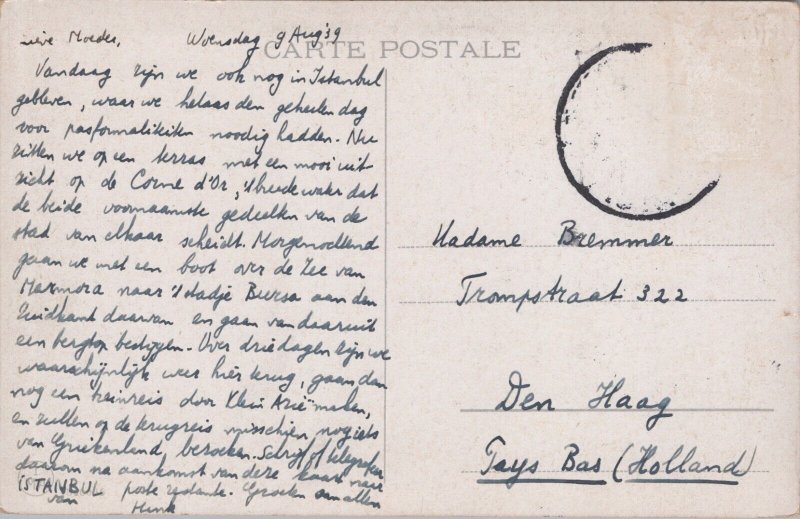 Lieve Moeder, Woensdag 9 Aug '39
CARTE POSTALE
Vandaag zijn we ook nog in Istanbul
gebleven, waar we helaas den geheelen dag
voor pasformaliteiten noodig hadden. Nu
zitten we op een terras met een mooi uit
zicht op de Corne d'Or, 't breede water dat
de beide voornaamste gedeelten van de
stad van elkaar scheidt. Morgenochtend
gaan we met een boot over de Zee van
Marmora naar 't stadje Bursa aan den
Zuidkant daarvan en gaan van daaruit
een bergtop bestijgen. Over drie dagen zijn we
waarschijnlijk weer hier terug, gaan dan
nog een treinreis door Klein Azië maken,
en zullen op de terugreis misschien nog iets
van Griekenland bezoeken. Schrijf of telegrafeer
daarom na aankomst van deze kaart naar
ISTANBUL poste restante. Groeten aan allen
van Henk
Madame Bremmer
Trompstraat 322
Den Haag
Pays Bas (Holland)